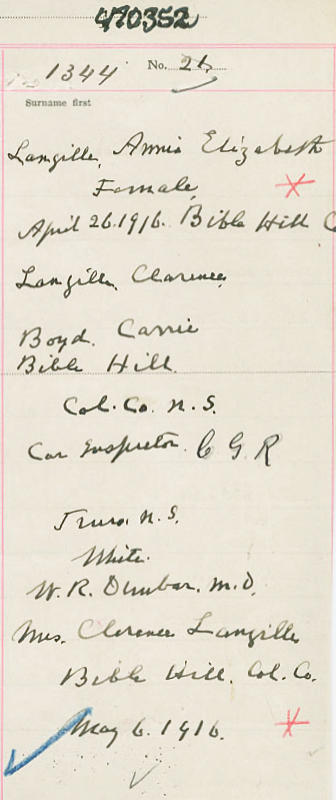 470352
1344 No. 21.
Surname first
Langille, Annie Elizabeth
Female
April 26.1916. Bible Hill C
Langille, Clarence
Boyd. Carrie
Bible Hill.
Col. Co. N.S.
Car Inspector. C G R
Truro N.S.
White.
W. R. Dunbar. M.D.
Mrs. Clarence Langille
Bible Hill. Col. Co.
May 6. 1916.